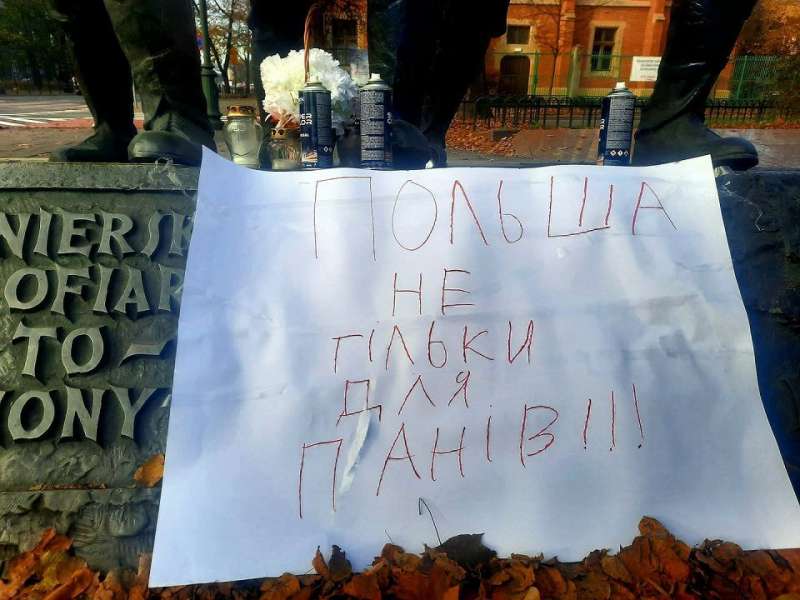 ПОЛЬША
НЕ
ТІЛЬКИ
ДЛЯ
ПАНІВ!!!
NIERSK
OFIAR
TO-
WONY